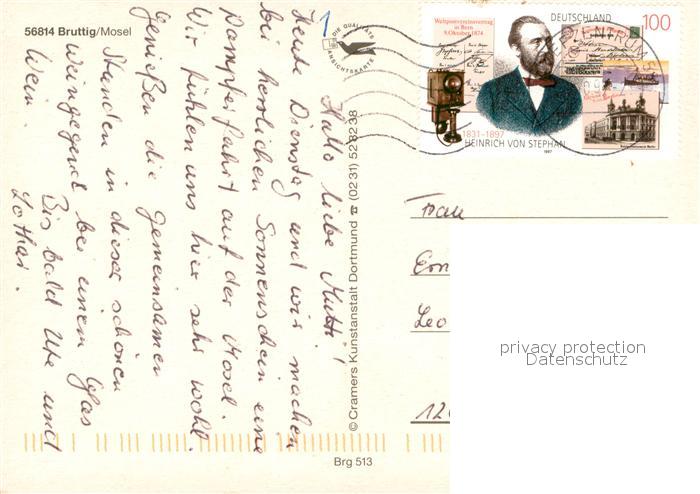 56814 Bruttig/Mosel
DIE QUALITÄTS
ANSICHTSKARTE
Hallo liebe Mutti!
Heute Dienstag und wir machen
bei herrlichen Sonnenschein eine
Dampferfahrt auf der Mosel.
Wir fühlen uns hier sehr wohl.
Genießen die gemeinsamen
Stunden in dieser schönen
Weingegend bei einem Glas
Wein. Bis bald Ute und
Lothar.
© Cramers Kunstanstalt Dortmund ☎ (0231) 528238
Brg 513
Weltpostvereinsvertrag
in Bern
9. Oktober 1874
DEUTSCHLAND
100
1831-1897
HEINRICH VON STEPHAN
1997
Frau
Leo
privacy protection
Datenschutz